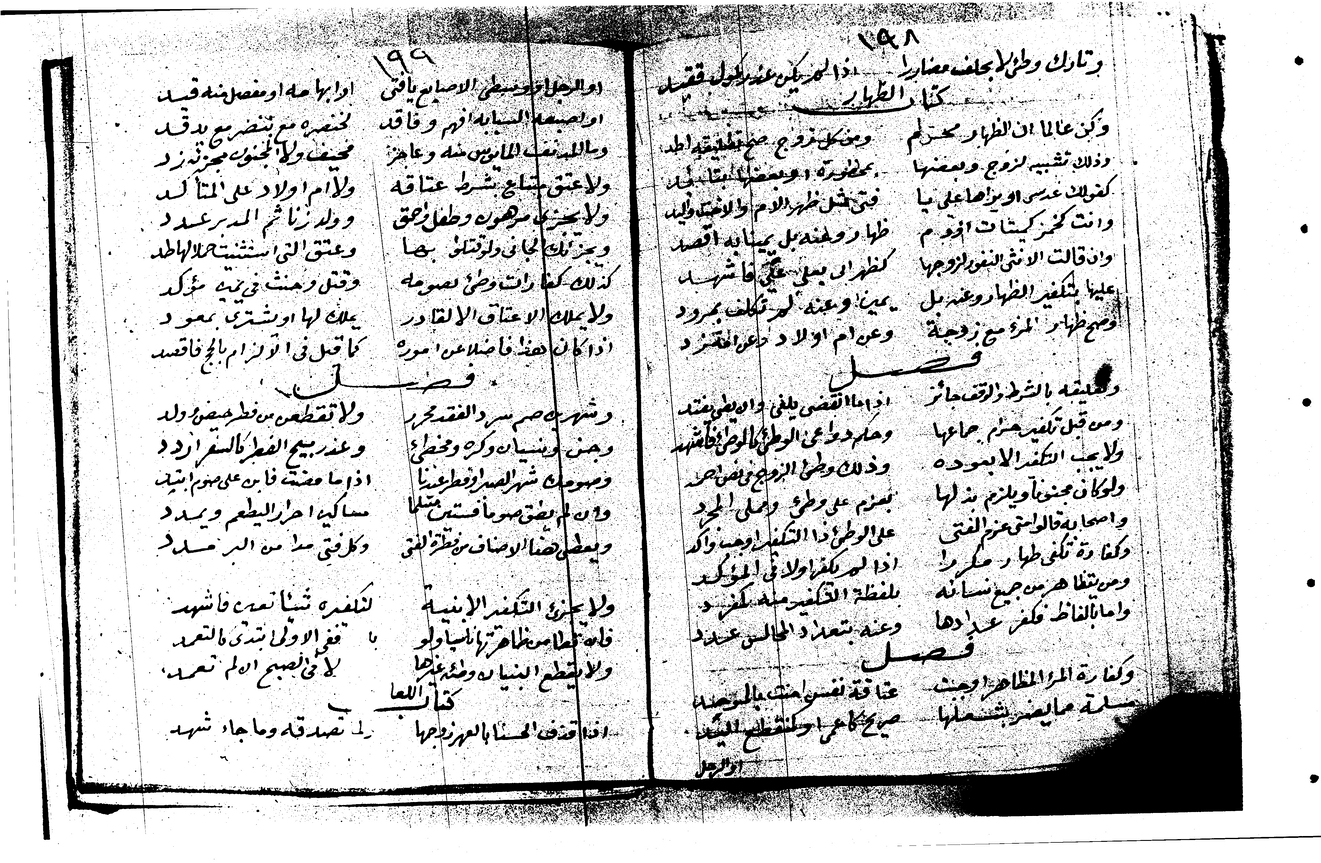 ١٩٨
وتارك وطئ لا بحلف مضارا اذا لم يكن عذر كمول فقيد
كتاب الظهار
وكن عالما ان الظهار محرم ومن كل زوج صح تطليقه اطد
وذلك تشبيه لزوج وبعضها بمحظورة او بعضها
كقولك عرسي او يراها علي يا فتى مثل ظهر الام والاخت واليد
وانت كخمر كميتات اقدم ظهار وعنه بل يمينا به اقصد
وان قالت الانثى النفور لزوجها كظهر ابي بعلي علي فاشهد
عليها بتكفير الظهار وعنه بل يمين او عنه لم تكلف بمرود
وصح ظهار المرء مع زوجة وعن ام اولاد وعن
فصل
وتعليقه بالشرط والوقف جائز اذا ما انقضى يلغى وان يطي يفتد
ومن قبل تكفير حرام جماعها وحكم دواعي الوطئ كالوطئ فاشهد
ولا يجب التكفير الا بعوده وذلك وطئ الزوج في نص احمد
ولو كان مجنونا ويلزم بذلها بعزم على وطئ
واصحابه قالوا متى عزم الفتى على الوطئ ذا التكفير اوجب واكد
وكفارة تكفي ظهار مكررا اذا لم يكفر اولا في المؤكد
ومن يتظاهر من جميع نسائه بلفظة التكفير منه بمفرد
واما بالفاظ فكفر عدادها وعنه بتعداد المجالس عدد
فصل
وكفارة المرء المظاهر اوجبت عتاقة نفس امنت بالموحد
مسلمة مما يضر بشغلها صريح كاعمى او كمنقطع اليد
او الرجل
١٩٩
او الرجل او وسطى الاصابع يا فتى او ابهامه او مفصل منه قيد
او اصبعه السبابة افهم وفاقد لخنصره مع بنصر مع يد قد
وما المدنف المايوس منه وعاجز نحيف ولا المجنون مجز به زد
ولا عتق مبتاع بشرط عتاقه ولا ام اولاد على المتأكد
ولا يجزي مرهون وطفل واحمق وولد زنا ثم المدبر عدد
ويجزئك الجاني ولو قتلوا بها وعتق التي استثنيت حملا لها طد
كذلك كفارات وطئ بصومه وقتل وحنث في يمين مؤكد
ولا يملك الاعتاق الا لقادر يملك لها او يشترى بمعود
اذا كان هذا فاضلا عن اموره كما قيل في الالزام بالحج فاقصد
فصل
وشهرين صم سرد الفقد محرر ولا تقطعن من فطر حيض ولد
وجن ونسيان وكره ومخطئ وعذر يبيح الفطر كالسفر ازدد
وصومك شهر الصبر او فطر عيدنا اذا ما مضت فابن على صوم ابتد
وان لم يطق صوما فستين مثلما مساكين احرار اليطعم ويمدد
ويعطى هنا الاصناف من فطرة الفتى وكل فتى مدا من البر مسدد
ولا يجزئ التكفير الا بنية لتكفيره شيئا تعدده فاشهد
فان يطا من ظاهرتها ناسيا ولو ففي الاولى ابتدى كالتعمد
ولا يقطع البنيان وطئه غيرها لا في الصحيح ان لم تعمد
كتاب اللعان
اذا قذف الحسنا بالعهر زوجها ولم تصدقه وما جاء شهد